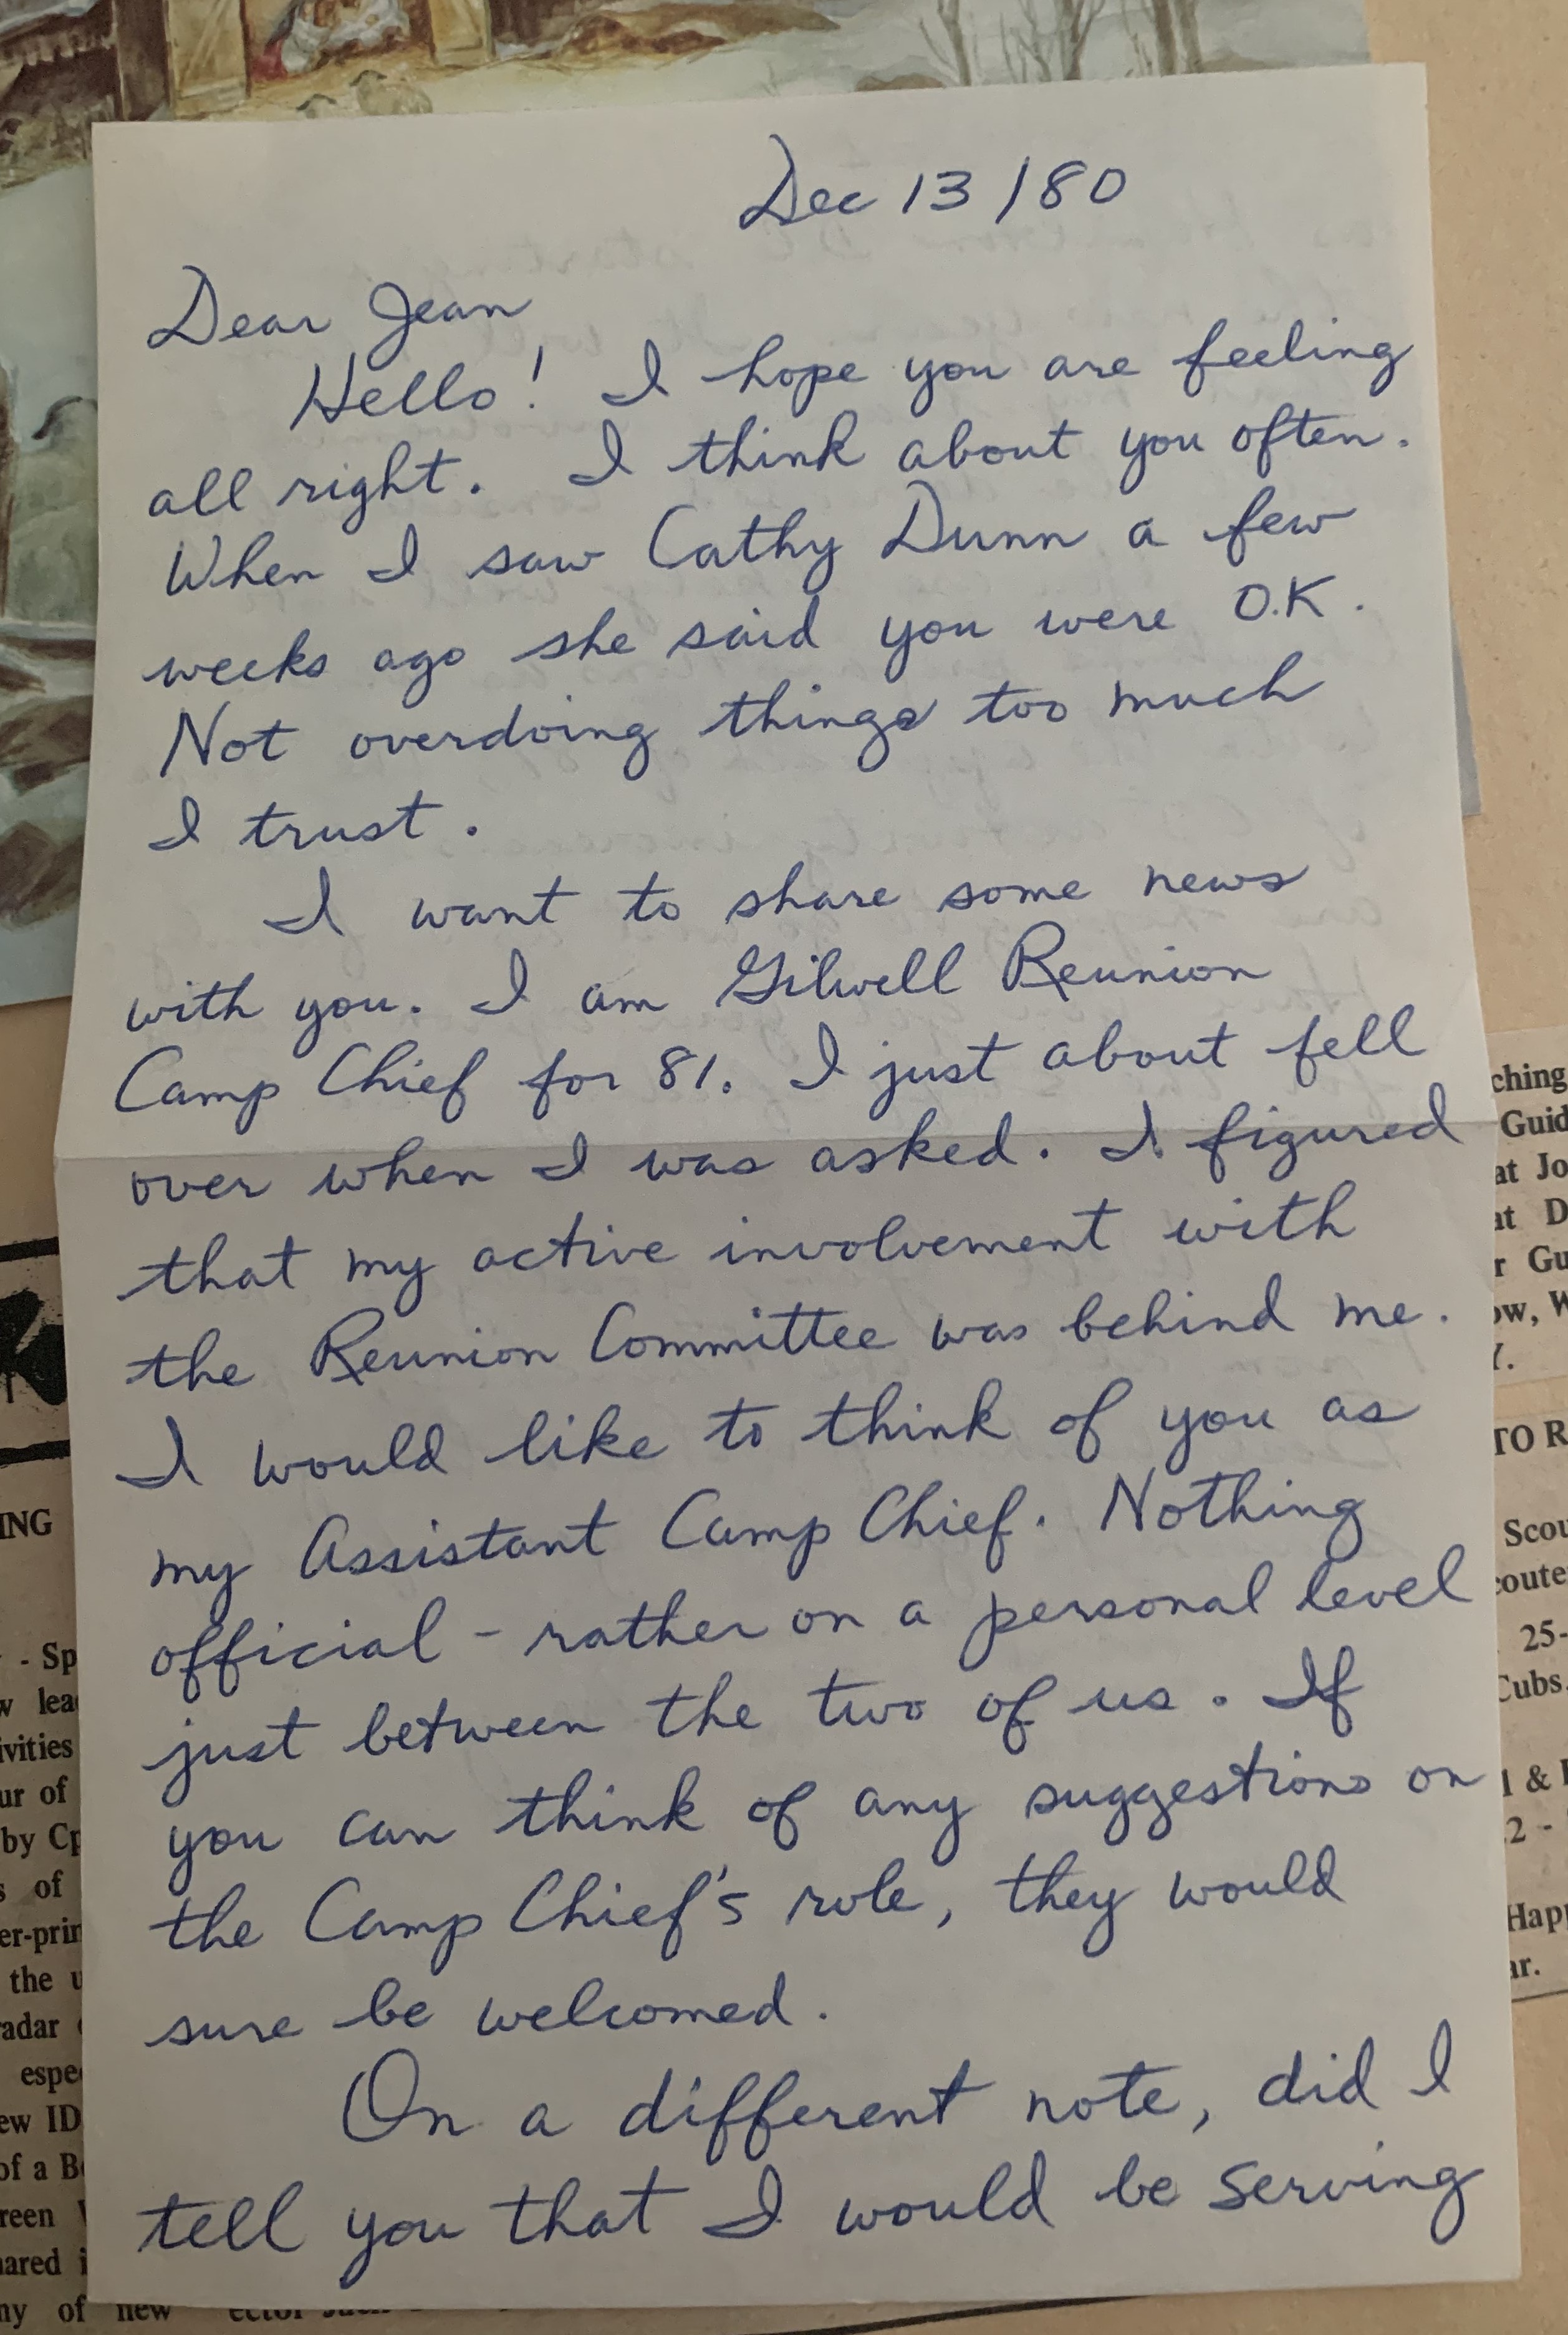 Dec 13/80
Dear Jean
Hello! I hope you are feeling
all right. I think about you often.
When I saw Cathy Dunn a few
weeks ago she said you were O.K.
Not overdoing things too much
I trust.
I want to share some news
with you. I am Gilwell Reunion
Camp Chief for 81. I just about fell
over when I was asked. I figured
that my active involvement with
the Reunion Committee was behind me.
I would like to think of you as
my Assistant Camp Chief. Nothing
official - rather on a personal level
just between the two of us. If
you can think of any suggestions on
the Camp Chief's role, they would
sure be welcomed.
On a different note, did I
tell you that I would be serving
ching
Guid
at Jo
at D
r Gu
ow, W
Y.
TO R
Scou
coute
25-
Cubs,
1 & 
2 -
Happ
ar.
ING
- Sp
w lea
ivities
ur of
by Cp
s of
er-prin
the u
radar
espe
ew ID
of a B
reen
hared i
ny of new